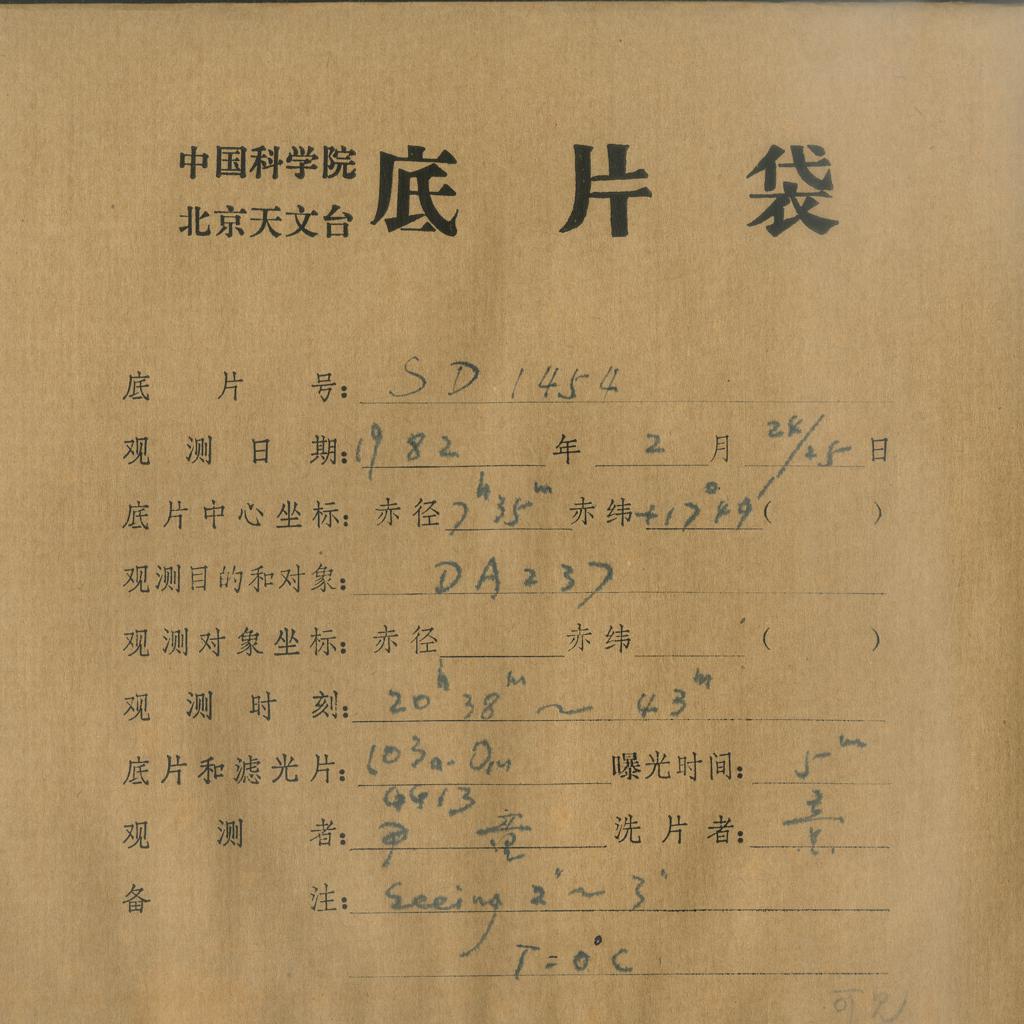 中国科学院
北京天文台
底片袋
底片号: SD 1454
观测日期: 1982 年 2 月 24/25 日
底片中心坐标: 赤径 7h 35m 赤纬 +17° 49′ ( )
观测目的和对象: DA 237
观测对象坐标: 赤径 赤纬 ( )
观测时刻: 20h 38m ~ 43m
底片和滤光片: 103a-O 曝光时间: 5m
4413
观测者: 童 洗片者:
备注: Seeing 2" ~ 3"
T = 0°C